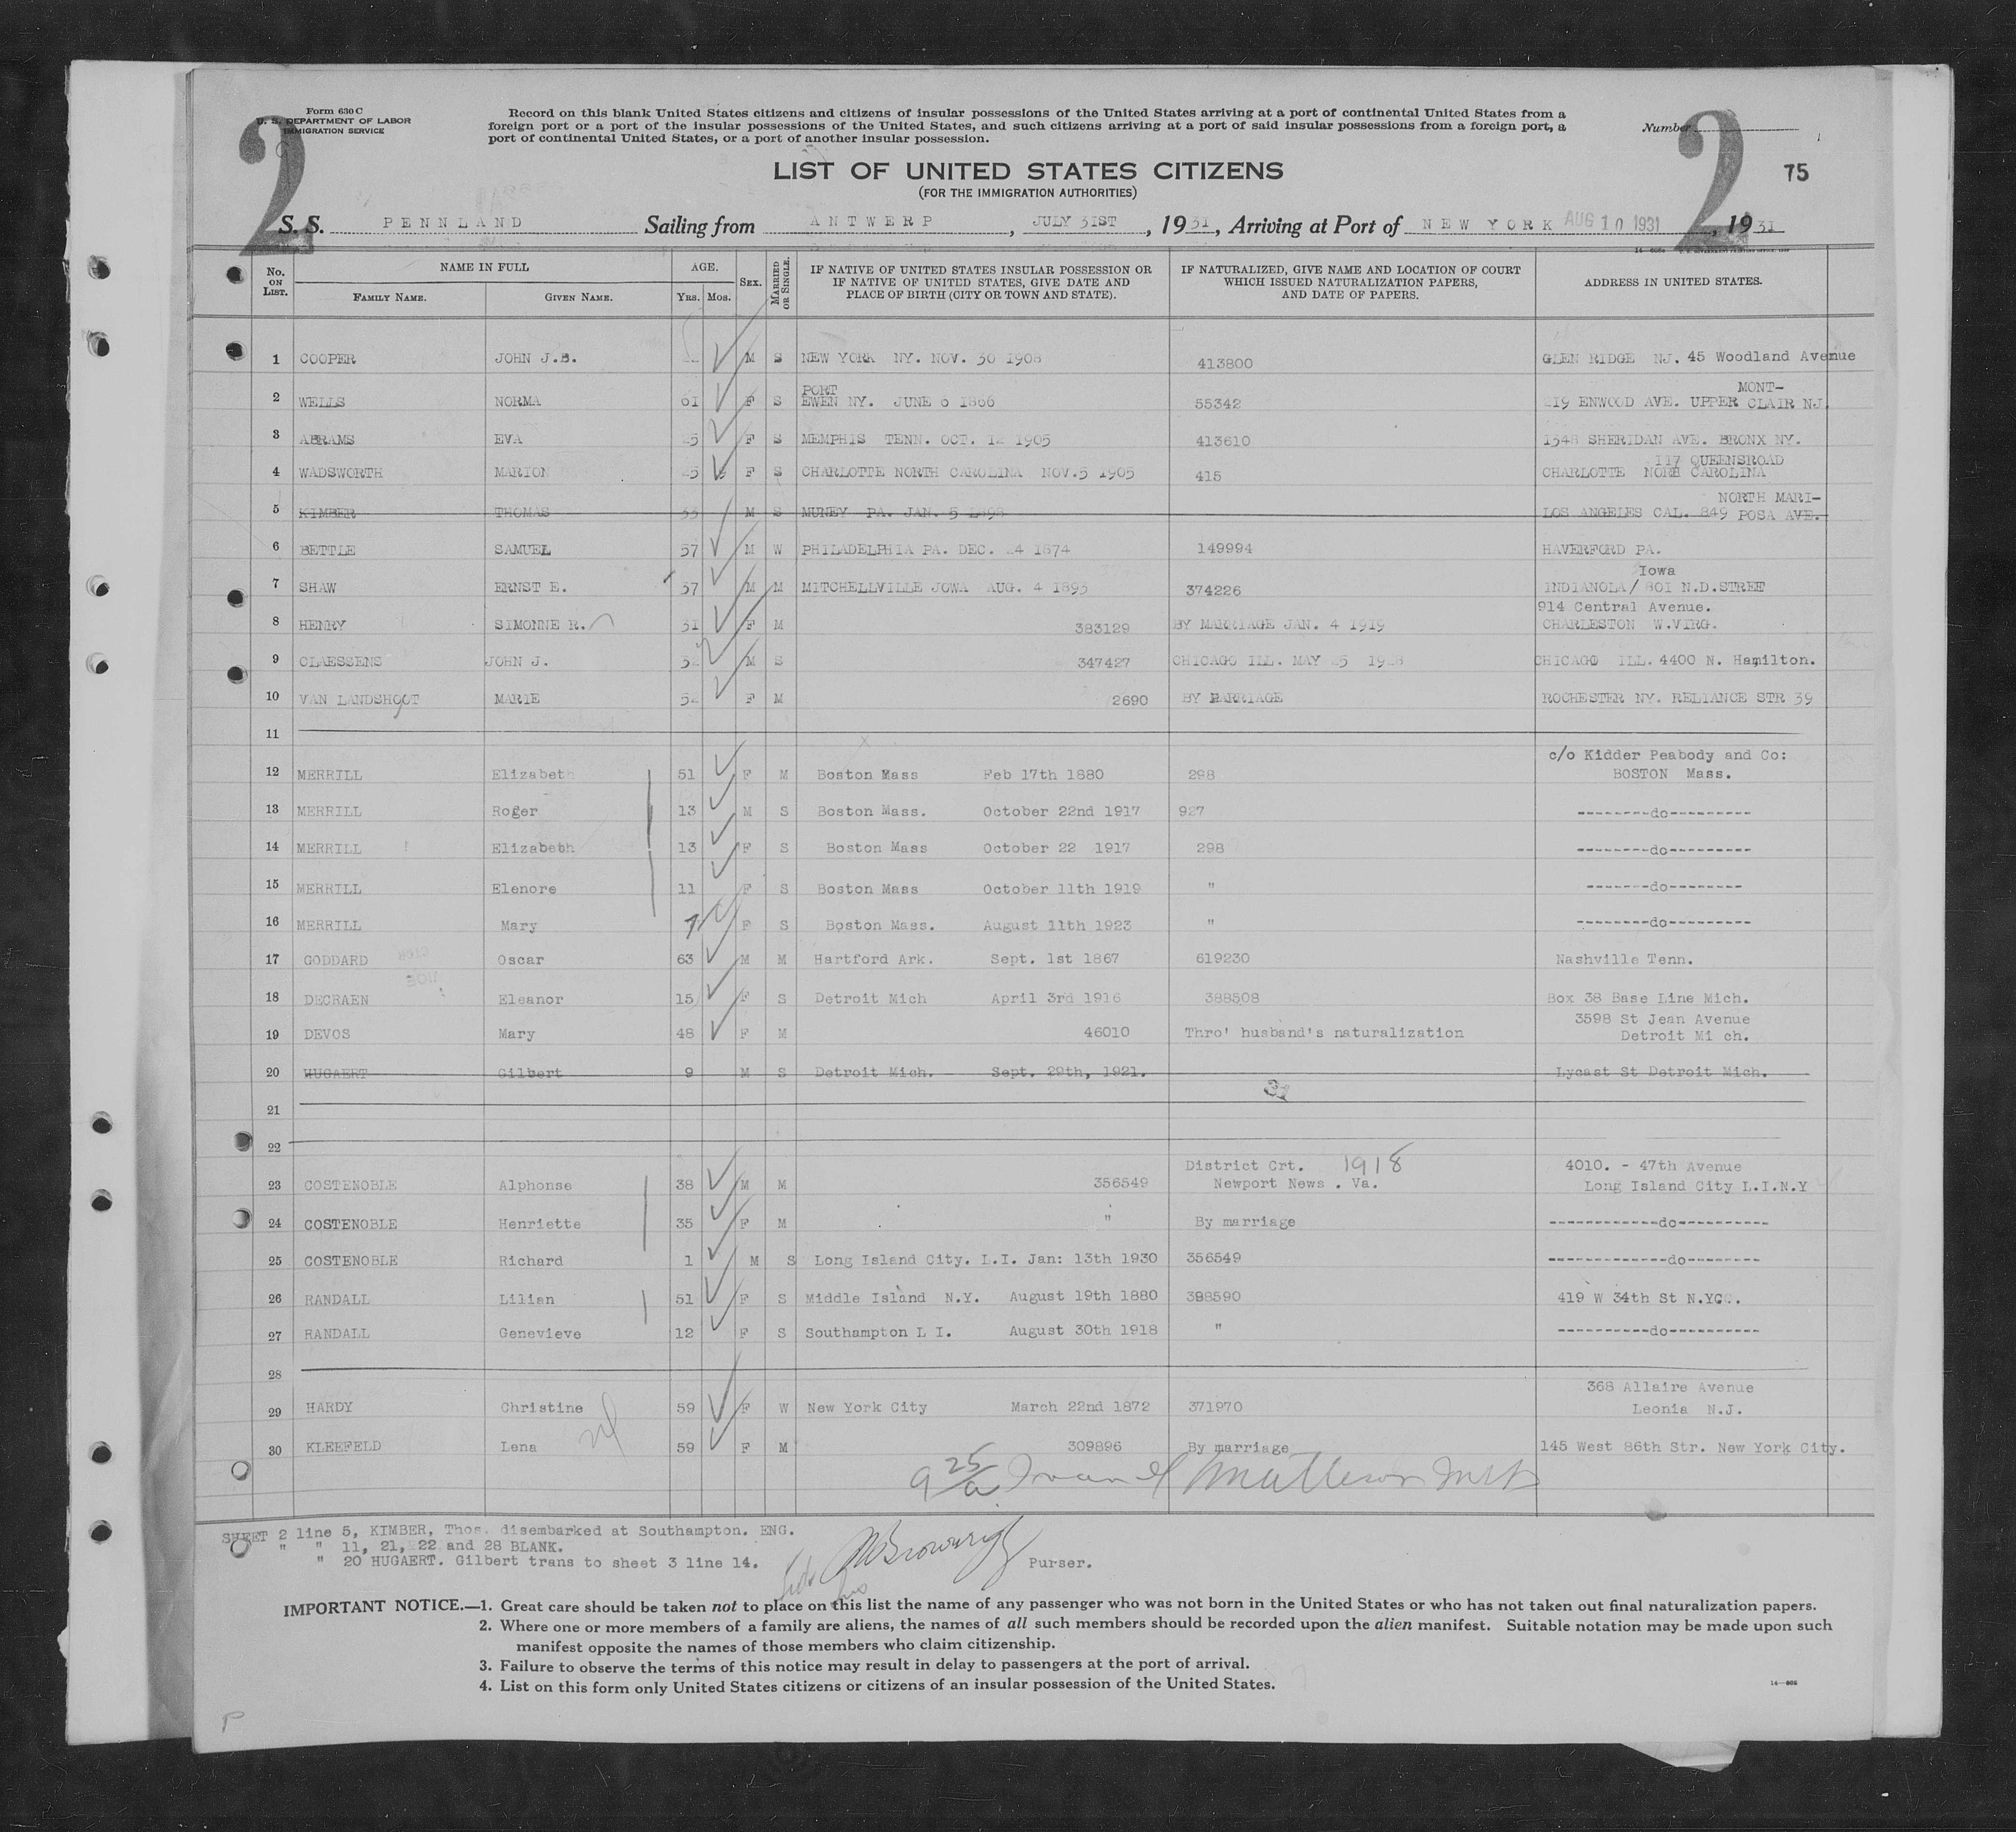 Form 630 C
U. S. DEPARTMENT OF LABOR
IMMIGRATION SERVICE
2
Record on this blank United States citizens and citizens of insular possessions of the United States arriving at a port of continental United States from a
foreign port or a port of the insular possessions of the United States, and such citizens arriving at a port of said insular possessions from a foreign port, a
port of continental United States, or a port of another insular possession.
Number
2
75
LIST OF UNITED STATES CITIZENS
(FOR THE IMMIGRATION AUTHORITIES)
S. S. PENNLAND Sailing from ANTWERP, JULY 31ST, 1931, Arriving at Port of NEW YORK AUG 10 1931, 1931
No. ON LIST. NAME IN FULL AGE. SEX. MARRIED OR SINGLE. IF NATIVE OF UNITED STATES INSULAR POSSESSION OR IF NATIVE OF UNITED STATES, GIVE DATE AND PLACE OF BIRTH (CITY OR TOWN AND STATE). IF NATURALIZED, GIVE NAME AND LOCATION OF COURT WHICH ISSUED NATURALIZATION PAPERS, AND DATE OF PAPERS. ADDRESS IN UNITED STATES.
FAMILY NAME. GIVEN NAME. YRS. MOS.
1 COOPER JOHN J.B. M S NEW YORK NY. NOV. 30 1908 413800 GLEN RIDGE NJ. 45 Woodland Avenue
PORT MONT-
2 WELLS NORMA 61 F S EWEN NY. JUNE 6 1866 55342 219 ENWOOD AVE. UPPER CLAIR NJ.
3 ABRAMS EVA 25 F S MEMPHIS TENN. OCT. 12 1905 413610 1548 SHERIDAN AVE. BRONX NY.
117 QUEENSROAD
4 WADSWORTH MARION 25 F S CHARLOTTE NORTH CAROLINA NOV.5 1905 415 CHARLOTTE NORH CAROLINA
NORTH MARI-
5 KIMBER THOMAS 33 M S MUNEY PA. JAN. 5 1898 LOS ANGELES CAL. 849 POSA AVE.
6 BETTLE SAMUEL 57 M W PHILADELPHIA PA. DEC. 24 1874 149994 HAVERFORD PA.
Iowa
7 SHAW ERNST E. 37 M M MITCHELLVILLE JOWA AUG. 4 1893 374226 INDIANOLA/ 801 N.D.STREE
914 Central Avenue.
8 HENRY SIMONNE R. 31 F M 383129 BY MARRIAGE JAN. 4 1919 CHARLESTON W.VIRG.
9 CLAESSENS JOHN J. 32 M S 347427 CHICAGO ILL. MAY 25 1928 CHICAGO ILL. 4400 N. Hamilton.
10 VAN LANDSHOOT MARIE 52 F M 2690 BY MARRIAGE ROCHESTER NY. RELIANCE STR 39
11
c/o Kidder Peabody and Co:
12 MERRILL Elizabeth 51 F M Boston Mass Feb 17th 1880 298 BOSTON Mass.
13 MERRILL Roger 13 M S Boston Mass. October 22nd 1917 927 --------do---------
14 MERRILL Elizabeth 13 F S Boston Mass October 22 1917 298 --------do---------
15 MERRILL Elenore 11 F S Boston Mass October 11th 1919 " -------do--------
16 MERRILL Mary 7 F S Boston Mass. August 11th 1923 " --------do---------
17 GODDARD Oscar 63 M M Hartford Ark. Sept. 1st 1867 619230 Nashville Tenn.
18 DECRAEN Eleanor 15 F S Detroit Mich April 3rd 1916 388508 Box 38 Base Line Mich.
3598 St Jean Avenue
19 DEVOS Mary 48 F M 46010 Thro' husband's naturalization Detroit Mi ch.
20 HUGAERT Gilbert 9 M S Detroit Mich. Sept. 29th, 1921. Lycast St Detroit Mich.
21
22
District Crt. 1918 4010. - 47th Avenue
23 COSTENOBLE Alphonse 38 M M 356549 Newport News . Va. Long Island City L.I.N.Y
24 COSTENOBLE Henriette 35 F M " By marriage ------------do----------
25 COSTENOBLE Richard 1 M S Long Island City. L.I. Jan: 13th 1930 356549 -------------do--------
26 RANDALL Lilian 51 F S Middle Island N.Y. August 19th 1880 388590 419 W 34th St N.YC.
27 RANDALL Genevieve 12 F S Southampton L I. August 30th 1918 " ----------do----------
28
368 Allaire Avenue
29 HARDY Christine 59 F W New York City March 22nd 1872 371970 Leonia N.J.
30 KLEEFELD Lena 59 F M 309896 By marriage 145 West 86th Str. New York City.
9 25/a
SHEET 2 line 5, KIMBER, Thos. disembarked at Southampton. ENG.
" " 11, 21, 22 and 28 BLANK.
" 20 HUGAERT. Gilbert trans to sheet 3 line 14.
Purser.
IMPORTANT NOTICE.—1. Great care should be taken not to place on this list the name of any passenger who was not born in the United States or who has not taken out final naturalization papers.
2. Where one or more members of a family are aliens, the names of all such members should be recorded upon the alien manifest. Suitable notation may be made upon such
manifest opposite the names of those members who claim citizenship.
3. Failure to observe the terms of this notice may result in delay to passengers at the port of arrival.
4. List on this form only United States citizens or citizens of an insular possession of the United States.
P